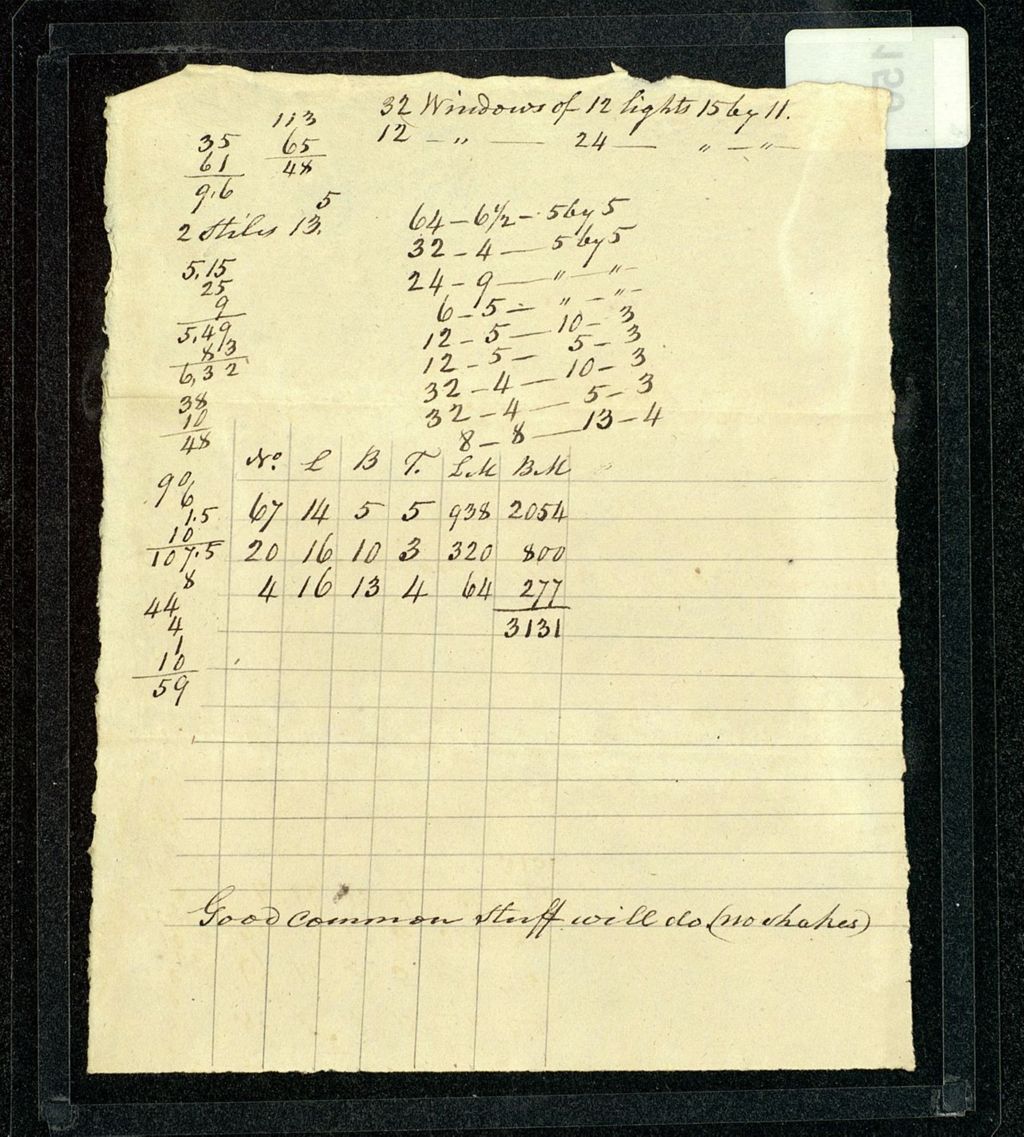 32 Windows of 12 lights 15 by 11.
12 — 〃 — 24 — 〃 — 〃 —
113
65
48
35
61
9.6
2 Stiles 13.5
5.15
25
9
5.49
83
6.32
38
10
48
90
6
1.5
10
107.5
8
44
4
1
10
59
64 – 6½ – 5 by 5
32 – 4 — 5 by 5
24 – 9 — 〃 — 〃 –
6 – 5 – 〃 – 〃 –
12 – 5 — 10 – 3
12 – 5 – 5 – 3
32 – 4 — 10 – 3
32 – 4 — 5 – 3
8 – 8 — 13 – 4
No. L B T. L.M B.M
67 14 5 5 938 2054
20 16 10 3 320 800
4 16 13 4 64 277
3131
Good common stuff will do. (no shakes)